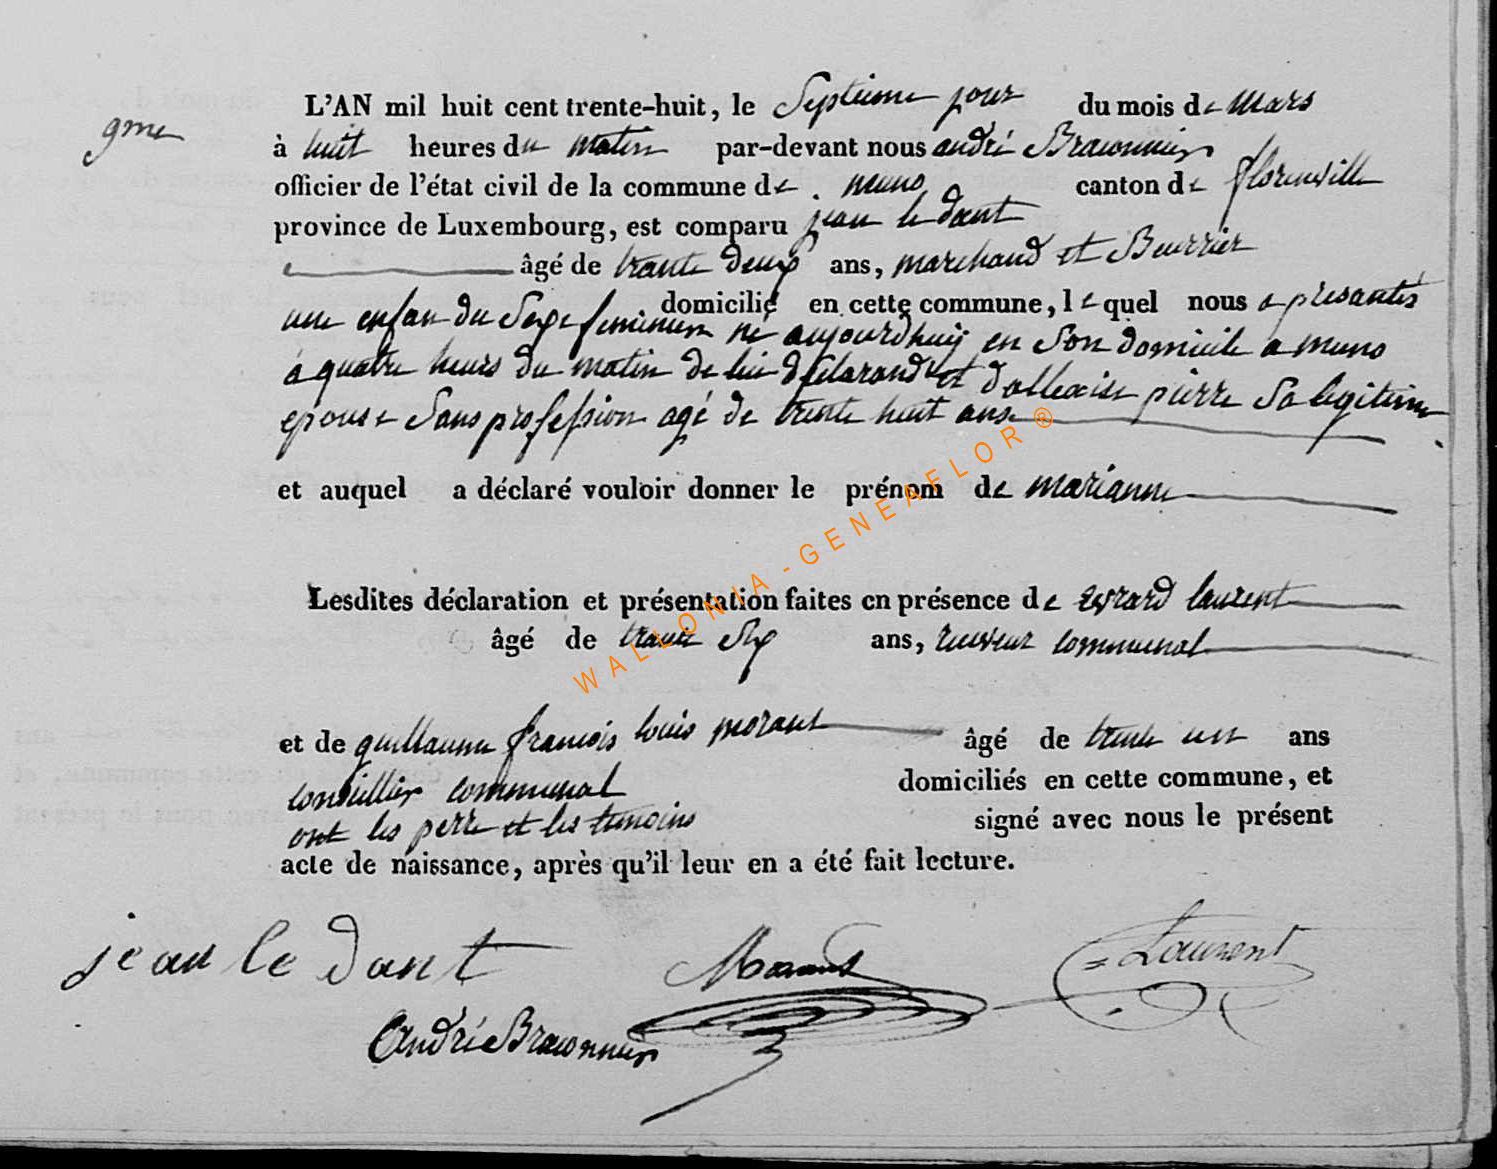 L'AN mil huit cent trente-huit, le Septieme jour du mois de Mars
9me
à huit heures du matin par-devant nous andré Braconnier
officier de l'état civil de la commune de muno canton de florenville
province de Luxembourg, est comparu jean le dant
âgé de trante deux ans, marchand et Beurrier
domicilié en cette commune, lequel nous a presantés
une enfan du Sexe feminin né aujourdhuij en Son domicile a muno
a quatre heurs du matin de lui declarand et d'alleaise pierre Sa legitime
epouse Sans profession agé de trente huit ans
et auquel a déclaré vouloir donner le prénom de marianne
Lesdites déclaration et présentation faites en présence de evrard laurent
âgé de trante Six ans, receveur communal
et de guillaume francois louis morant âgé de trente un ans
conseillier communal domiciliés en cette commune, et
ont les perre et les temoins signé avec nous le présent
acte de naissance, après qu'il leur en a été fait lecture.
jean le dant Morant Laurent
André Braconnier
WALLONIA - GENEAFLOR ®